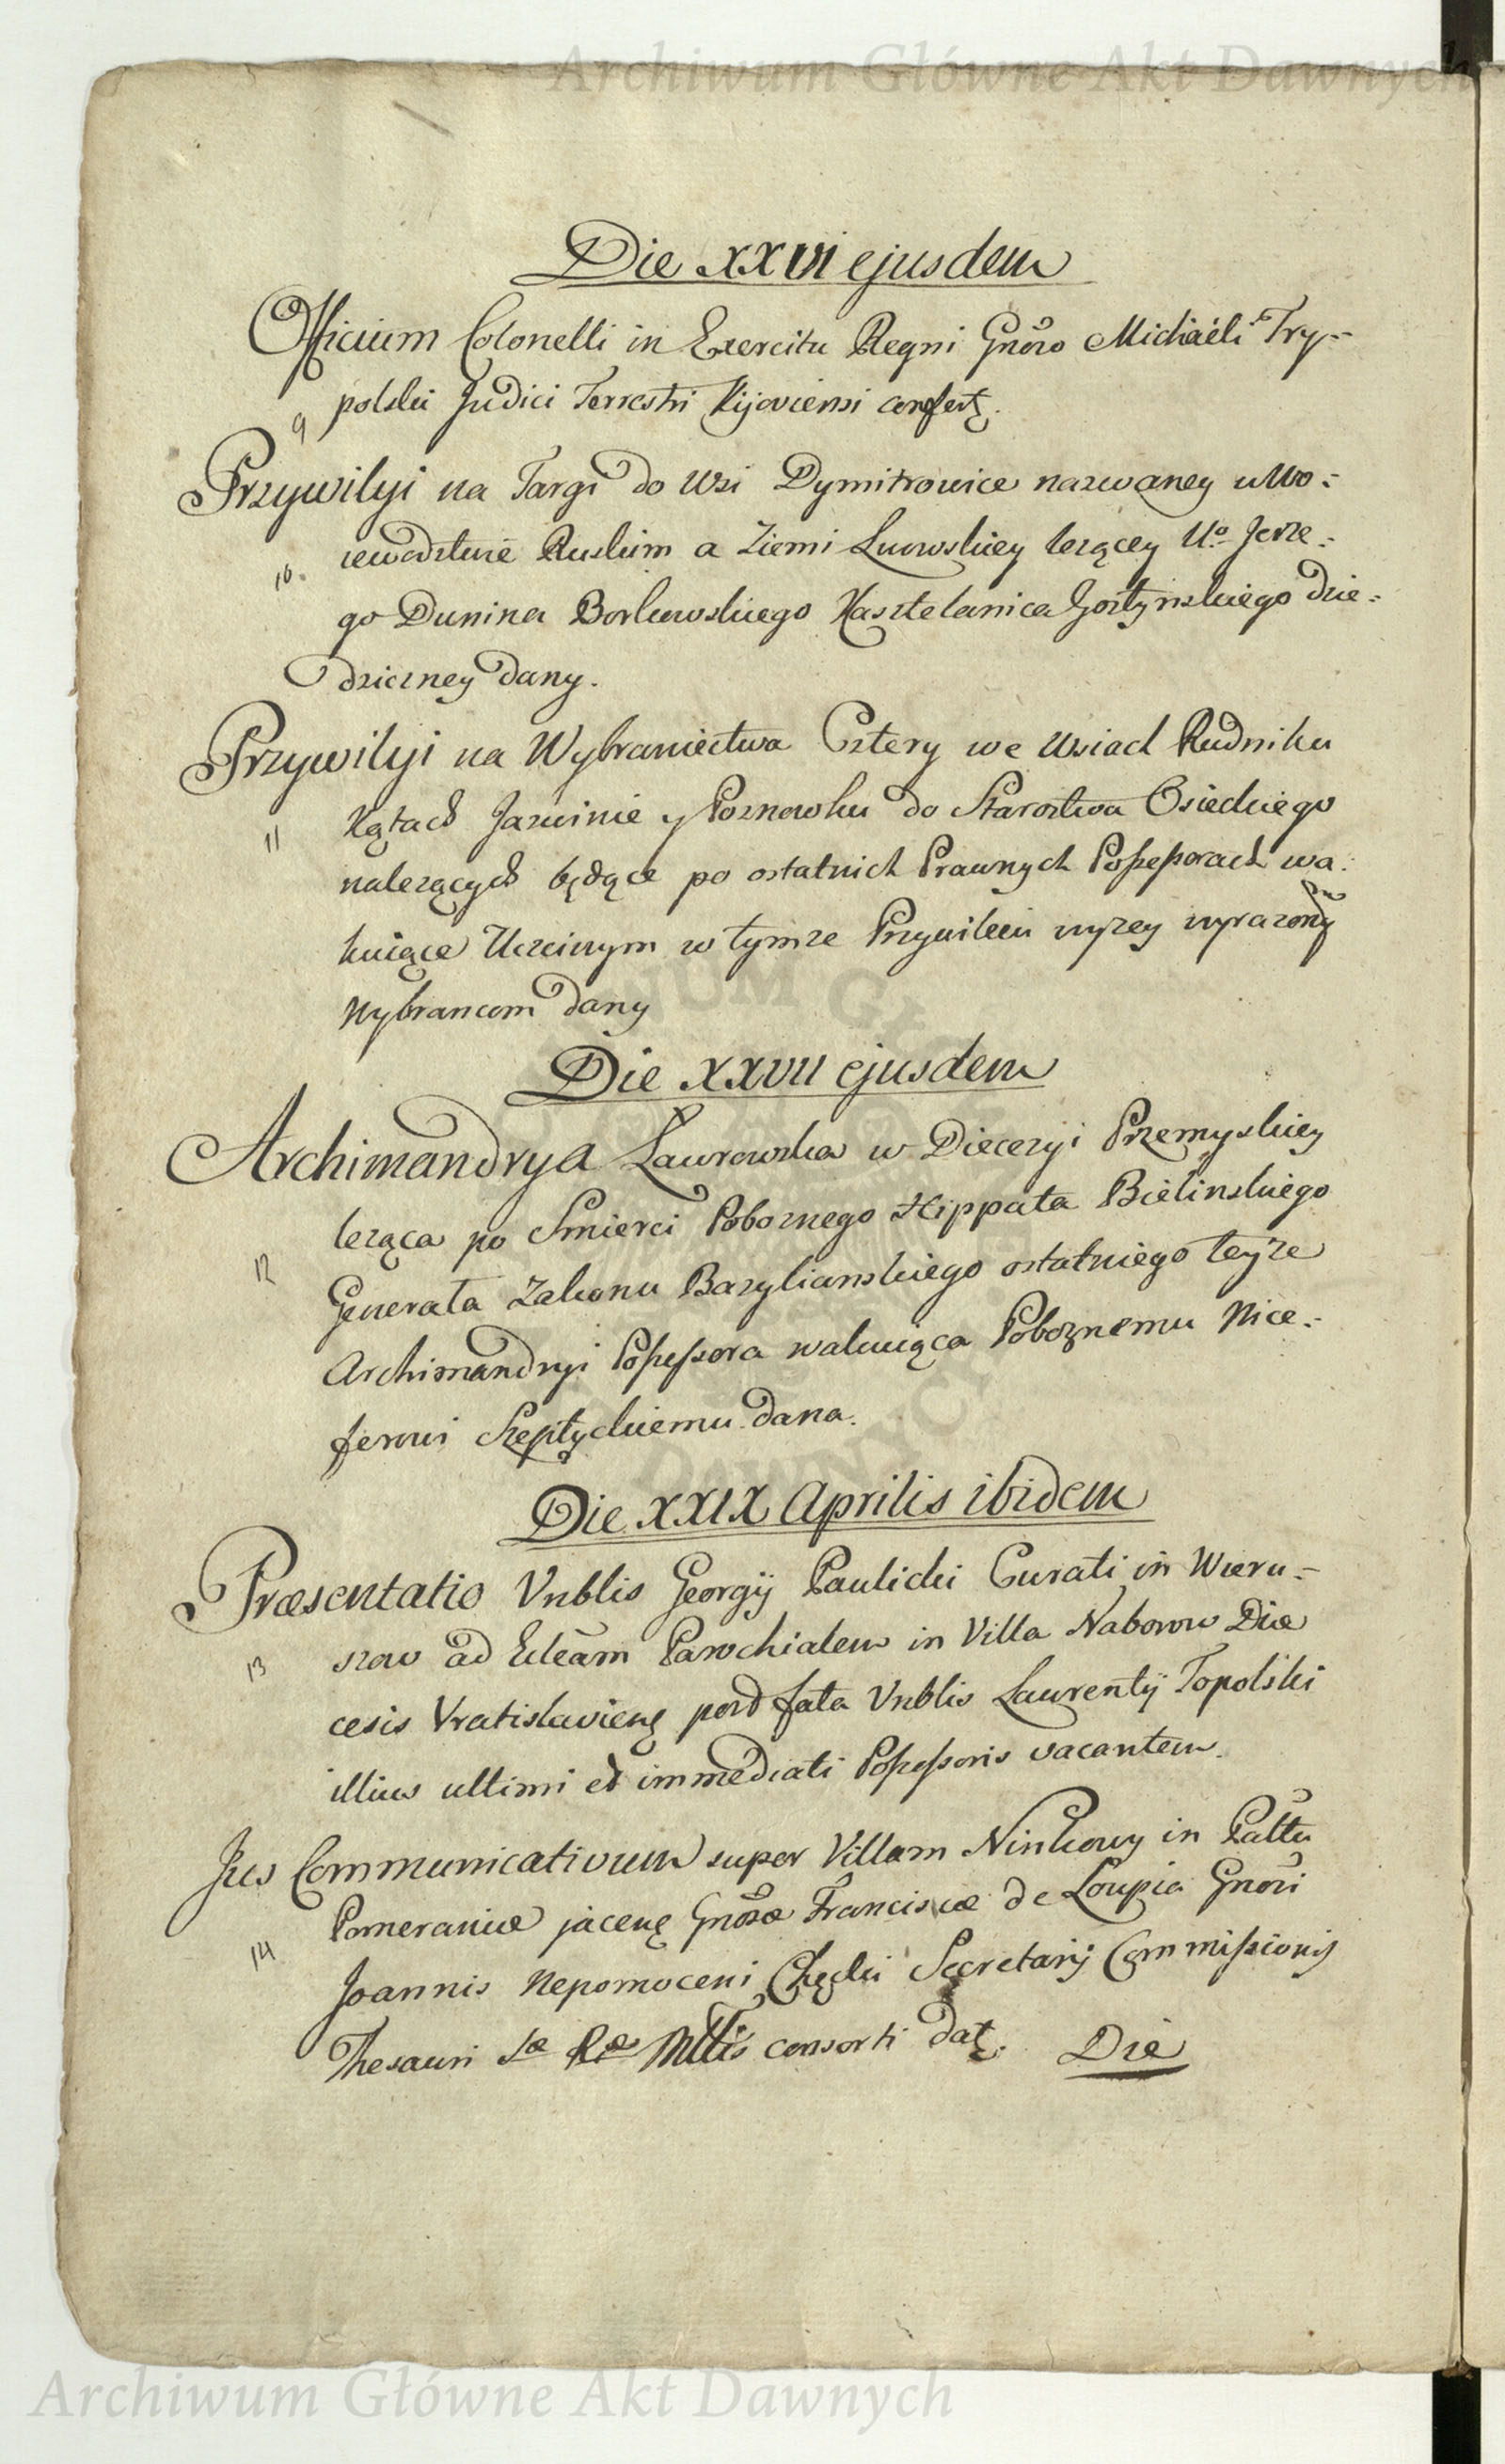 Archiwum Główne Akt Dawnych
Die XXVI ejusdem
Officium Colonelli in Exercitu Regni Gnõso Michaeli Try-
9 polski Judici Terrestri Kijoviensi confert.
Przywilyi na Targi do Wsi Dymitrowice nazwaney w Wo-
10. iewodztwie Ruskim a Ziemi Lwowskiey lezącey Uo. Jerze-
go Dunina Borkowskiego Kasztelanica Gostynskiego dzie-
dziczney dany.
Przywilyi na Wybraniectwa Cztery we Wsiach Rudniku
11 Kątach Jazwinie y Poznowku do Starostwa Osieckiego
nalezących będące po ostatnich Prawnych Possessorach wa-
kuiące Uczciwym w tymze Przywileiu wyzey wyrazonym
Wybrancom dany
Die XXVII ejusdem
Archimandrya Ławrowska w Diecezyi Przemyskiey
leząca po Smierci Poboznego Hippata Bielinskiego
12 Generała Zakonu Bazylianskiego ostatniego teyze
Archimandryi Possessora wakuiąca Poboznemu Nice-
forowi Szeptyckiemu dana.
Die XXIX Aprilis ibidem
Præsentatio Vnblis Georgij Paulicki Curati in Wieru-
13 szow ad Eccleãm Parochialem in Villa Naborow Diæ
cesis Vratislaviens post fata Vnblis Laurentij Topolski
illius ultimi et immediati Possessoris vacantem.
Jus Communicativum super Villam Ninkowy in Palttu
Pomeraniæ jacens Gnõsæ Franciscæ de Loupia Gnõsi
14 Joannis Nepomoceni Chęcki Secretarij Commissionis
Thesauri Sæ Ræ Mttis consorti dat. Die
Archiwum Główne Akt Dawnych